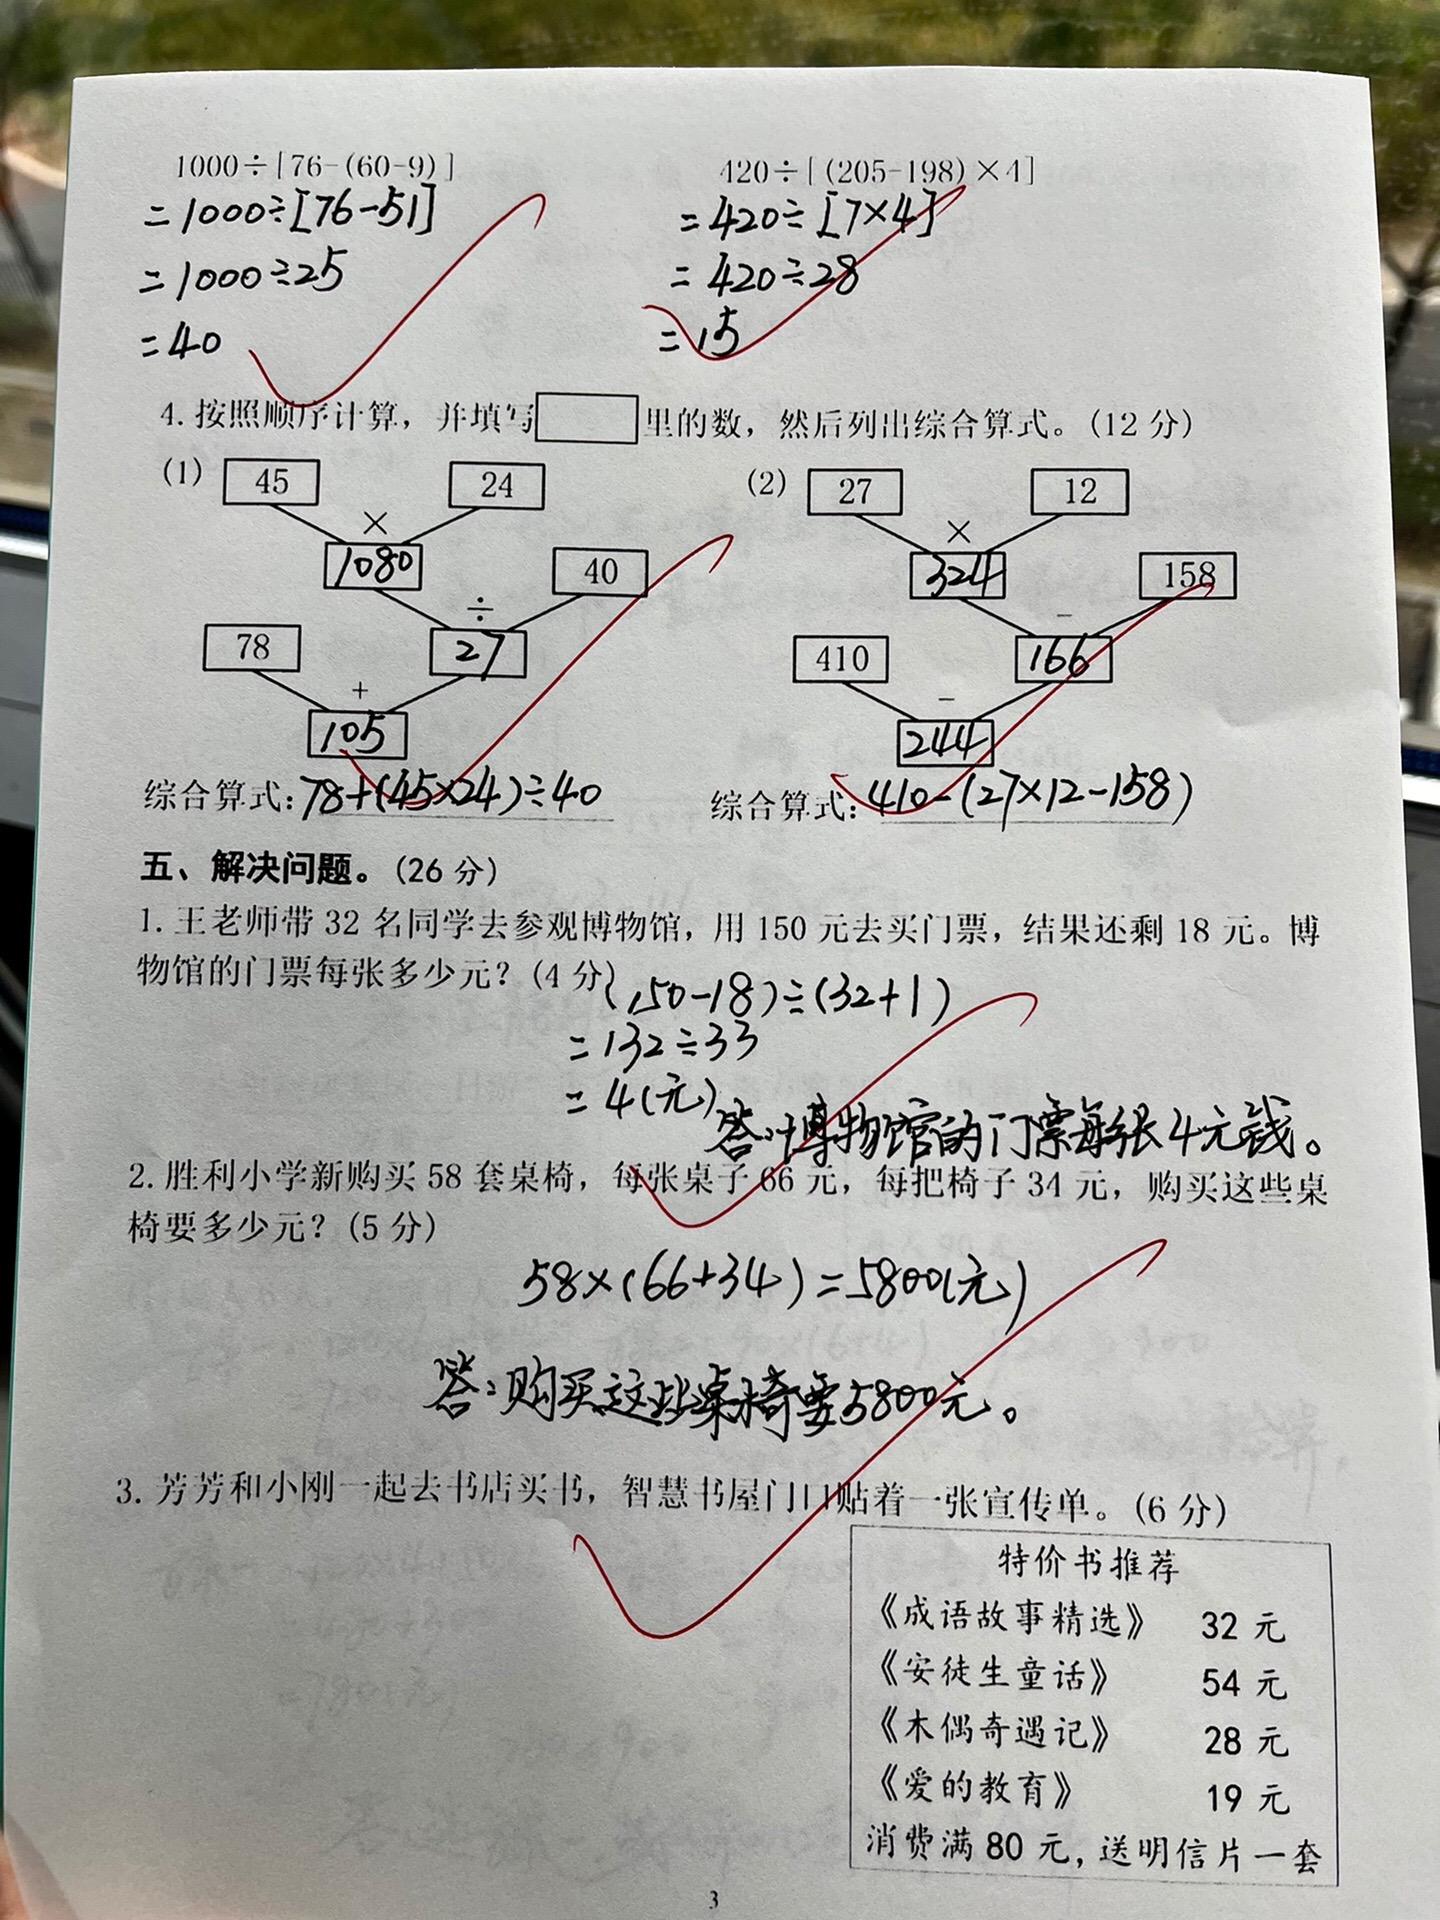 1000÷[76-(60-9)]
=1000÷[76-51]
=1000÷25
=40
420÷[(205-198)×4]
=420÷[7×4]
=420÷28
=15
4. 按照顺序计算，并填写 里的数，然后列出综合算式。(12 分)
(1) 45 24
×
1080 40
÷
78 27
+
105
综合算式:78+(45×24)÷40
(2) 27 12
×
324 158
−
410 166
−
244
综合算式:410-(27×12-158)
五、解决问题。(26 分)
1. 王老师带 32 名同学去参观博物馆，用 150 元去买门票，结果还剩 18 元。博
物馆的门票每张多少元？(4 分)
(150-18)÷(32+1)
=132÷33
=4(元)
答:博物馆的门票每张4元钱。
2. 胜利小学新购买 58 套桌椅，每张桌子 66 元，每把椅子 34 元，购买这些桌
椅要多少元？(5 分)
58×(66+34)=5800(元)
答:购买这些桌椅要5800元。
3. 芳芳和小刚一起去书店买书，智慧书屋门口贴着一张宣传单。(6 分)
特价书推荐
《成语故事精选》 32 元
《安徒生童话》 54 元
《木偶奇遇记》 28 元
《爱的教育》 19 元
消费满 80 元，送明信片一套
3